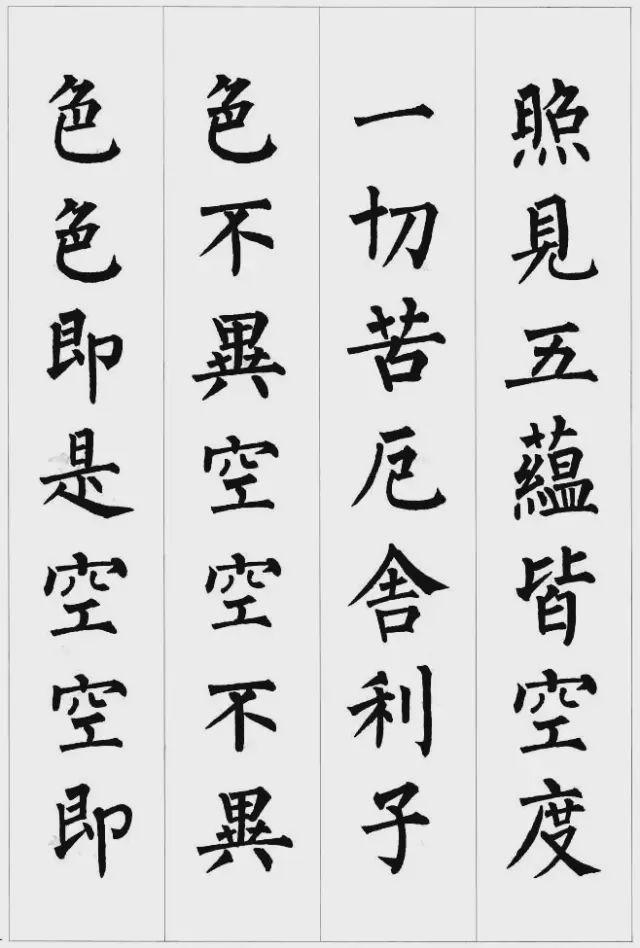 照見五蘊皆空度
一切苦厄舍利子
色不異空空不異
色色即是空空即